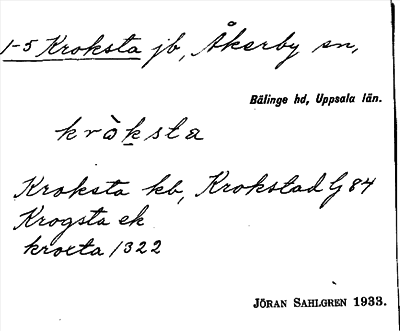 1-5 Kroksta jb, Åkerby sn,
Bälinge hd, Uppsala län.
kròksta
Kroksta kb, Krokstad G 84
Krogsta ek
krocta 1322
JÖRAN SAHLGREN 1933.